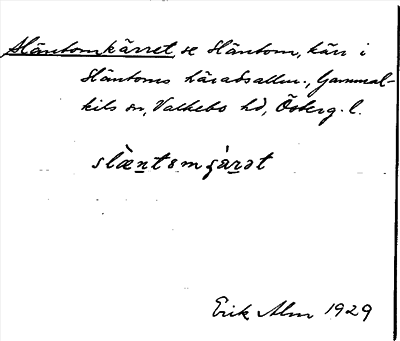 Släntomkärret, se Släntom, kärr i
Släntoms häradsallm., Gammal-
kils sn, Valkebo hd, Österg. l.
slæ̀ntɷmçàrət
Erik Alm 1929